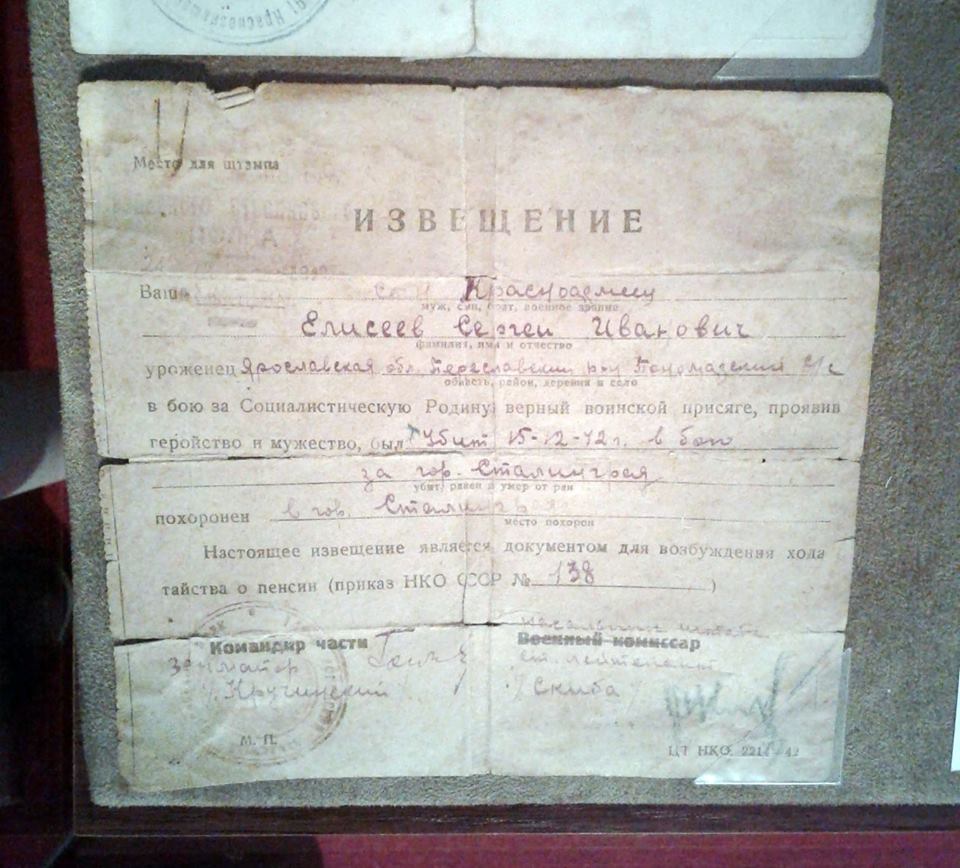 Место для штампа
ИЗВЕЩЕНИЕ
Ваш сын Красноармеец
муж, сын, брат, военное звание
Елисеев Сергей Иванович
фамилия, имя и отчество
уроженец Ярославская обл. Переславский р-н
область, район, деревня и село
в бою за Социалистическую Родину, верный воинской присяге, проявив
геройство и мужество, был убит 15-12-42 г. в бою
за гор. Сталинград
убит, ранен и умер от ран
похоронен в гор. Сталинград
место похорон
Настоящее извещение является документом для возбуждения хода
тайства о пенсии (приказ НКО СССР № 138)
Командир части
Военный комиссар
майор
ст. лейтенант
/Кручинский/
/Скиба/
М. П.
ЦТ НКО 221 -42